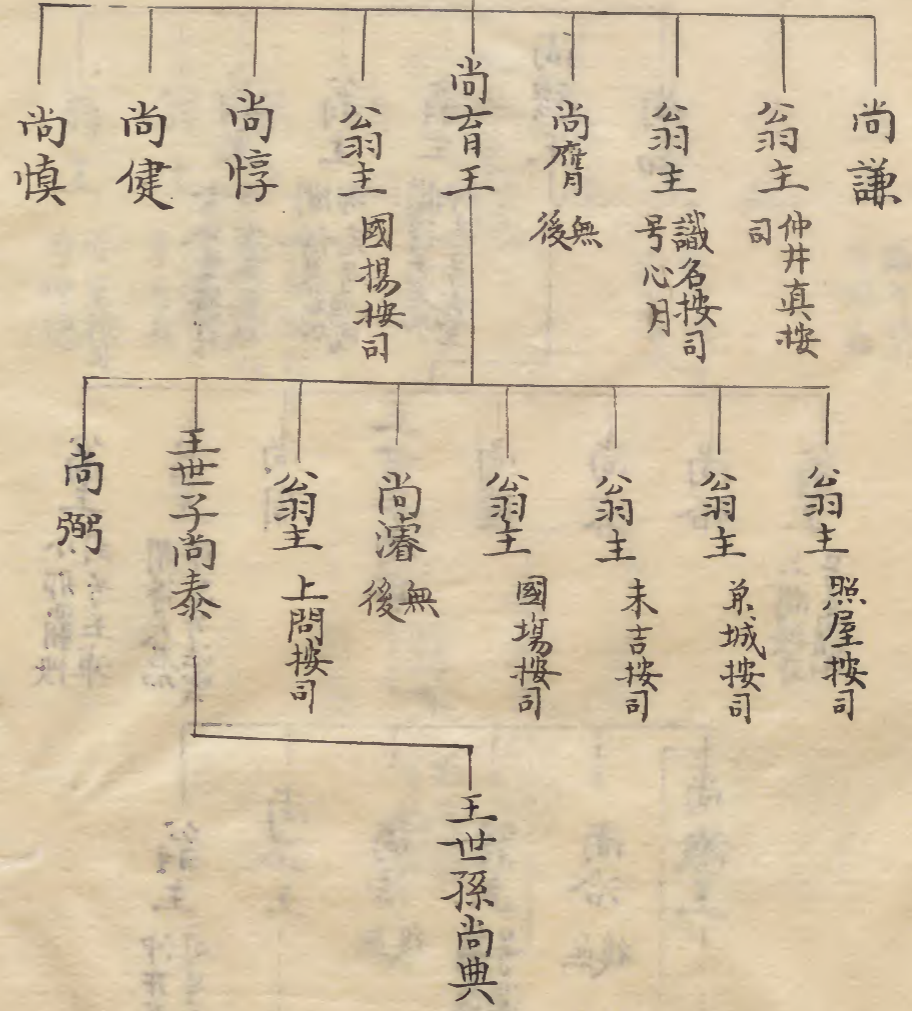 尚謙
翁主 仲井真按司
翁主 識名按司号心月
尚膺 無後
尚育王
翁主 國揚按司
尚惇
尚健
尚慎
翁主 照屋按司
翁主 兼城按司
翁主 末吉按司
翁主 國場按司
尚濬 無後
翁主 上間按司
王世子尚泰
尚弼
王世孫尚典